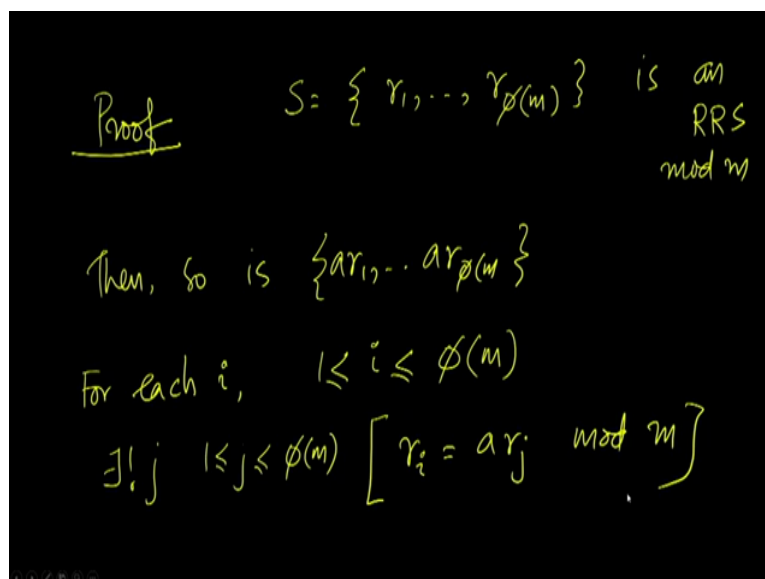 Proof S = { r₁, ..., r_ϕ(m) } is an
RRS
mod m
Then, so is {ar₁, .. ar_ϕ(m }
For each i, 1 ≤ i ≤ ϕ(m)
∃! j 1 ≤ j ≤ ϕ(m) [ r_i = ar_j mod m ]